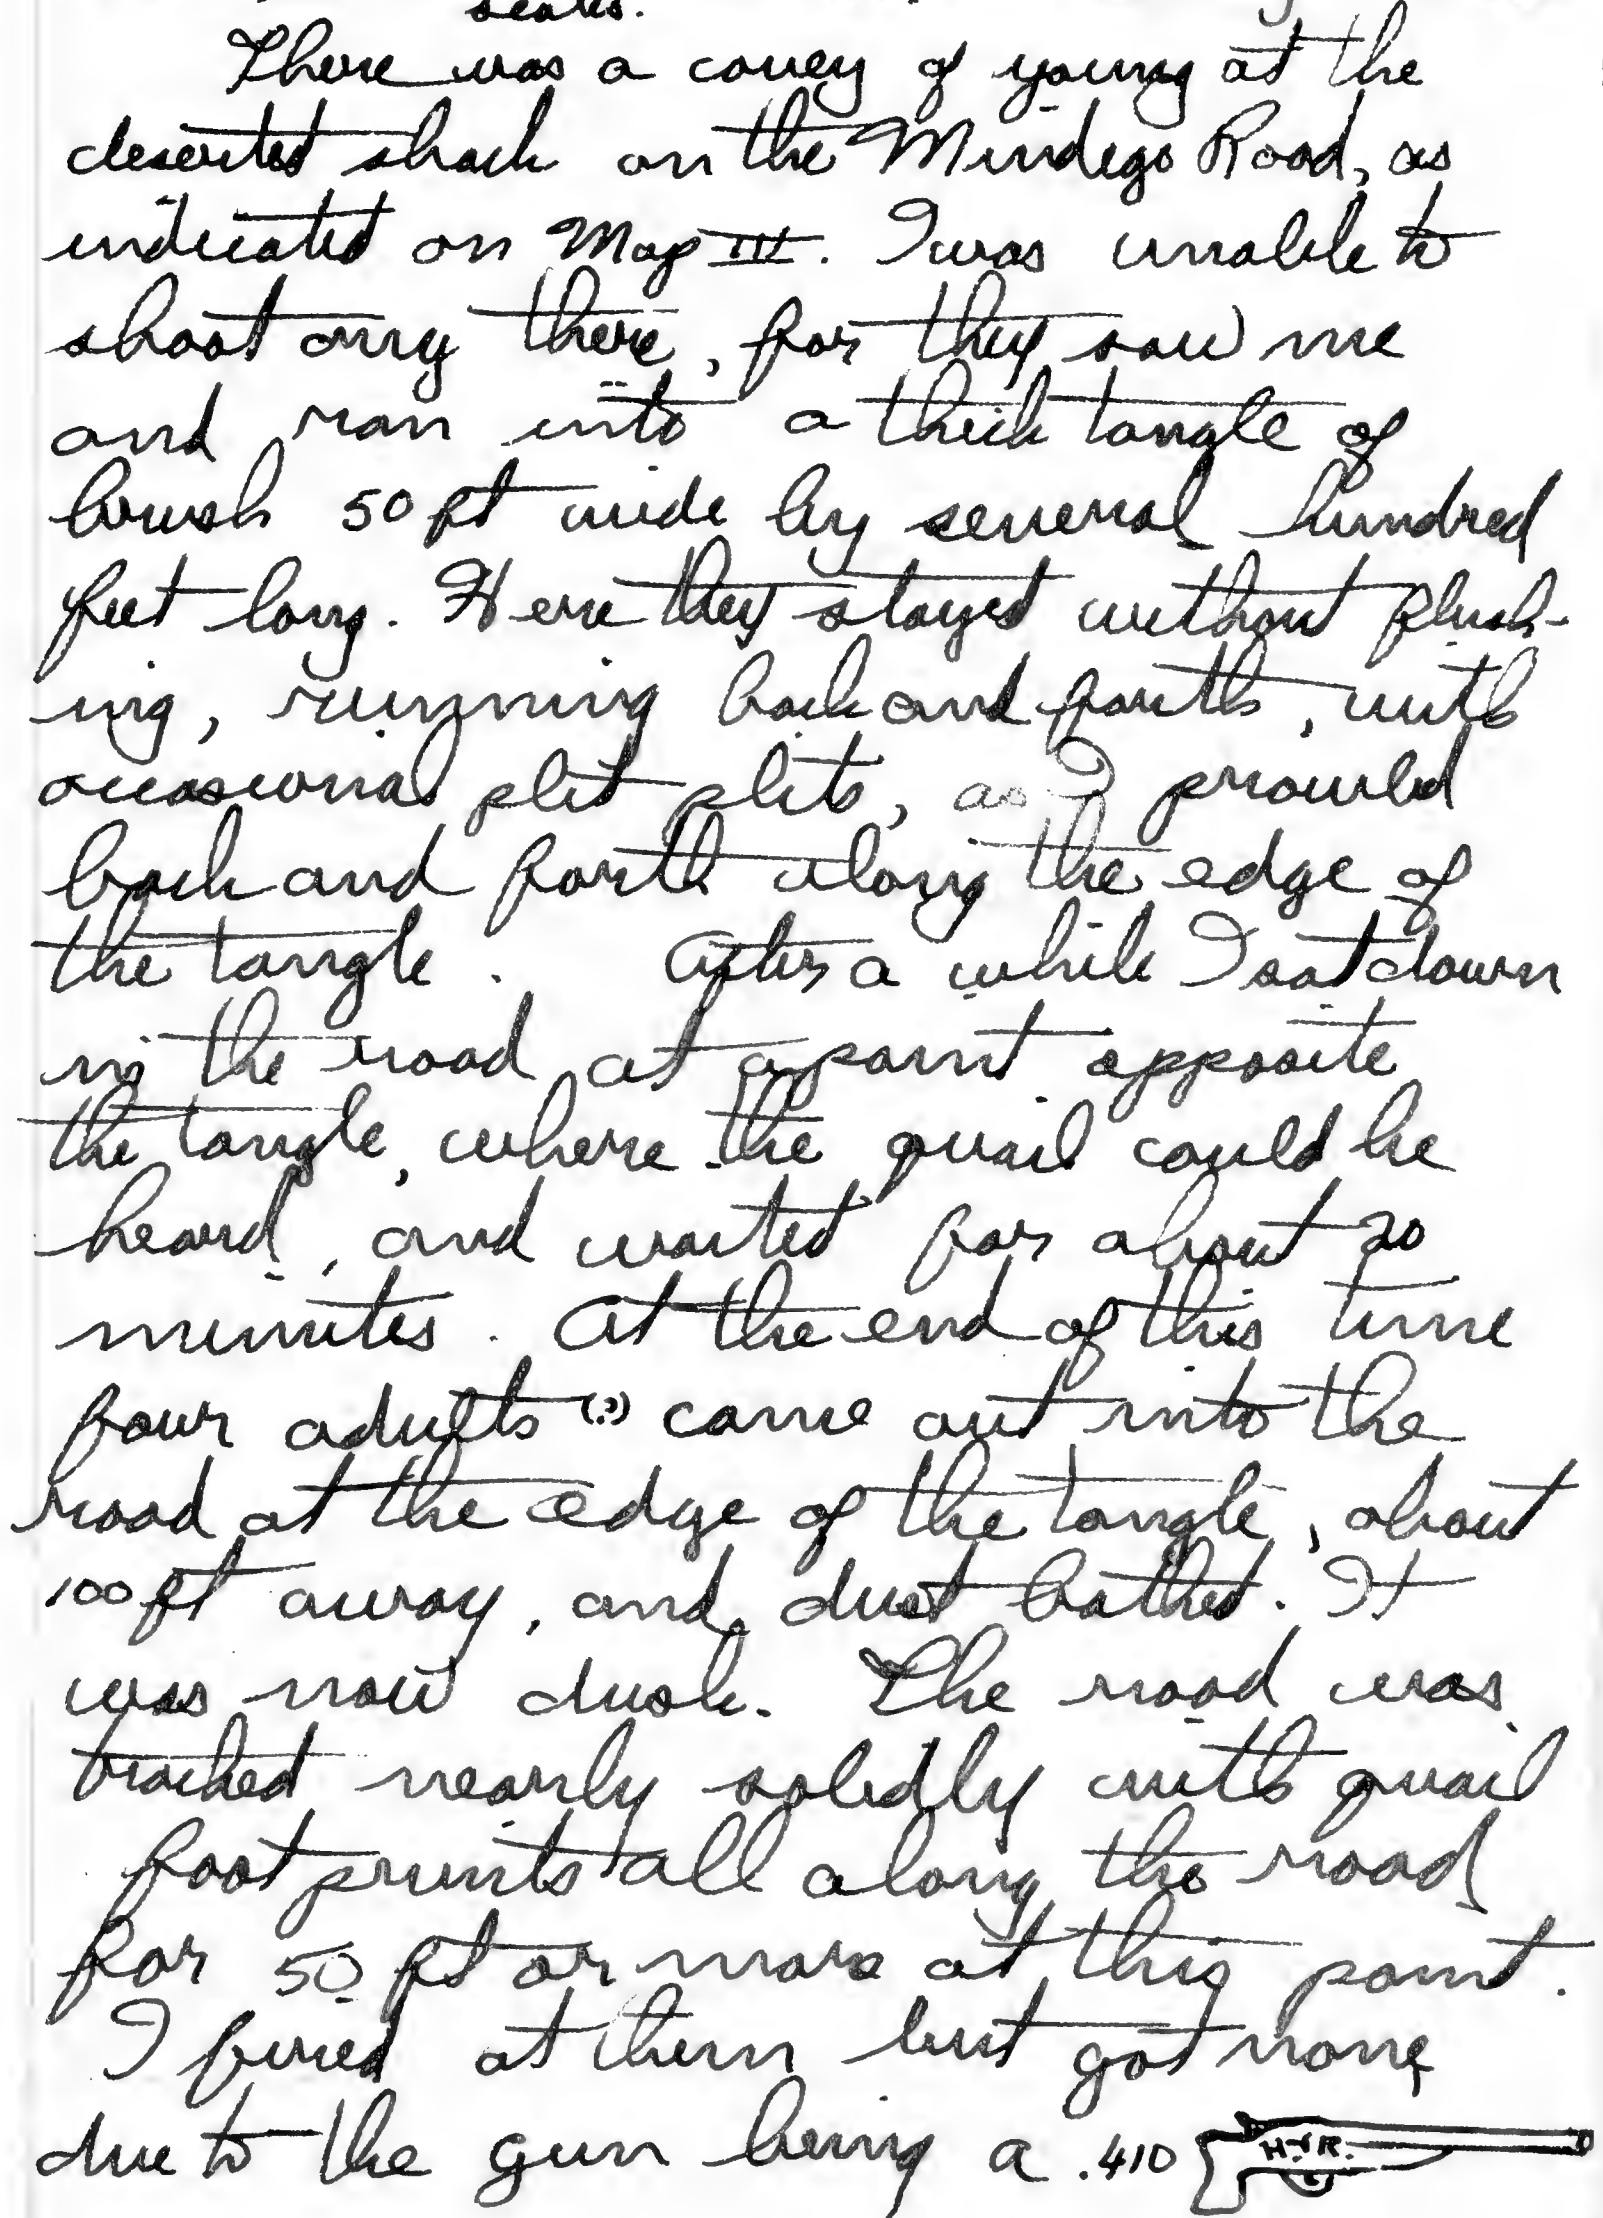 There was a covey of young at the
deserted shack on the Mindego Road, as
indicated on Map III. I was unable to
shoot any there, for they saw me
and ran into a thick tangle of
brush 50 ft wide by several hundred
feet long. Here they stayed without flush-
ing, running back and forth, with
occasional plit plits, as I prowled
back and forth along the edge of
the tangle. After a while I sat down
in the road at a point opposite
the tangle, where the quail could be
heard, and waited for about 20
minutes. At the end of this time
four adults (?) came out into the
road at the edge of the tangle, about
100 ft away, and dust bathed. It
was now dusk. The road was
tracked nearly solidly with quail
foot prints all along the road
for 50 ft or more at this point.
I fired at them but got none
due to the gun being a .410 H.&R.